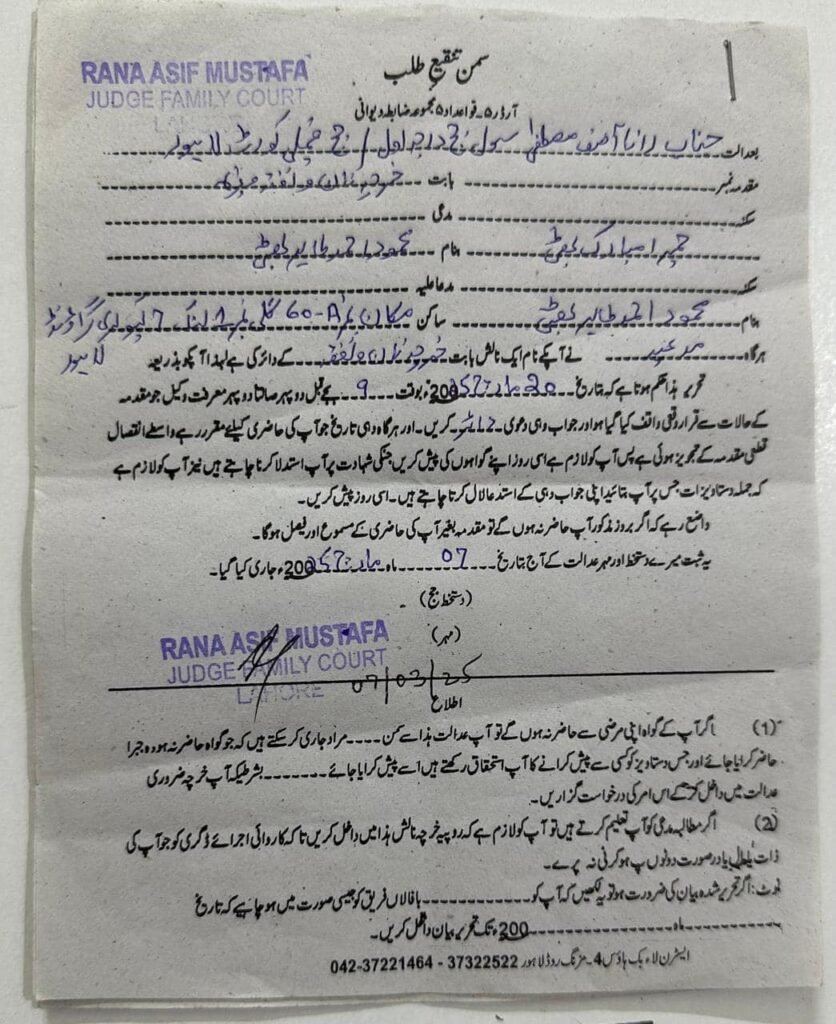 RANA ASIF MUSTAFA
JUDGE FAMILY COURT
LAHORE
سمن تنقیح طلب
آرڈر ۵۔ قواعد ۵ مجموعہ ضابطہ دیوانی
بعدالت جناب رانا آصف مصطفیٰ سول جج درجہ اول / جج فیملی کورٹ لاہور
مقدمہ نمبر بابت خرچہ نان و نفقہ
سکنہ مدعی
حمیرا مبارک بھٹی بنام محمود احمد طاہر بھٹی
سکنہ مدعا علیہ
بنام محمود احمد طاہر بھٹی ساکن مکان نمبر 60-A گلی نمبر 1 لنک
لاہور
ہرگاہ مدعیہ نے آپکے نام ایک نالش بابت خرچہ نان و نفقہ کے دائر کی ہے لہذا آپکو بذریعہ
تحریر ہذا حکم ہوتا ہے کہ بتاریخ 20 مارچ 200 ء بوقت 9 بجے قبل دوپہر اصالتا دوپہر معرفت وکیل جو مقدمہ
کے حالات سے قرار وقعی واقف کیا گیا ہو اور جواب دہی دعوی کریں۔ اور ہرگاہ وہی تاریخ جو آپ کی حاضری کیلئے مقرر ہے واسطے انفصال
قطعی مقدمہ کے تجویز ہوئی ہے پس آپ کو لازم ہے اسی روز اپنے گواہوں کی پیش کریں جنکی شہادت پر آپ استدلال کرنا چاہتے ہیں نیز آپ کو لازم ہے
کہ جملہ دستاویزات جس پر آپ بتائید اپنی جواب دہی کے استدعا لال کرتا چاہتے ہیں۔ اسی روز پیش کریں۔
واضع رہے کہ اگر بروز مذکور آپ حاضر نہ ہوں گے تو مقدمہ بغیر آپ کی حاضری کے مسموع اور فیصل ہوگا۔
یہ ثبت میرے دستخط اور مہر عدالت کے آج بتاریخ 07 ماہ مارچ 200 ء جاری کیا گیا۔
(دستخط جج)
(مہر)
RANA ASIF MUSTAFA
JUDGE FAMILY COURT
LAHORE
07/03/25
اطلاع
(1) اگر آپ کے گواہ اپنی مرضی سے حاضر نہ ہوں گے تو آپ عدالت ہذا سے سمن مراد جاری کر سکتے ہیں کہ جو گواہ حاضر نہ ہو وہ جبرا
حاضر کرایا جائے اور جس دستاویز کو کسی سے پیش کرانے کا آپ استحقاق رکھتے ہیں اسے پیش کرایا جائے بشرطیکہ آپ خرچہ ضروری
عدالت میں داخل کر کے اس امر کی درخواست گزاریں۔
(2) اگر مطالبہ مدعی کو آپ تعلیم کرتے ہیں تو آپ کو لازم ہے کہ روپیہ خرچہ نالش ہذا میں داخل کریں تا کہ کاروائی اجرائے ڈگری کو جو آپ کی
ذات یا مال یا در صورت دونوں پہ ہو کرنی نہ پرے۔
نوٹ: اگر تحریر شدہ بیان کی ضرورت ہو تو یہ لکھیں کہ آپ کو یا فلاں فریق کو جیسی صورت میں ہو چاہیے کہ تاریخ
ماہ 200 ء تک تحریر بیان داخل کریں۔
ایسٹرن لاء بک ہاؤس 4۔ مزنگ روڈ لاہور 37322522 - 042-37221464